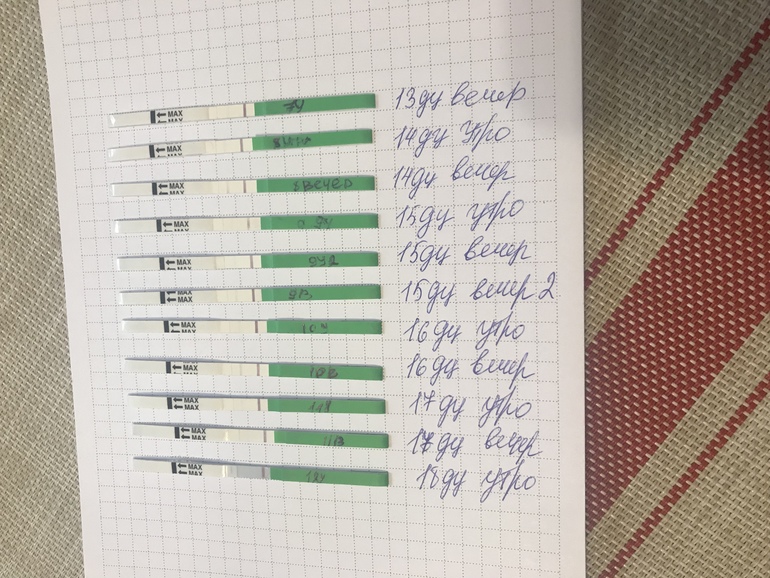 MAX MAX 7У 13ду вечер
MAX MAX 14ду утро
MAX MAX 8ВЕЧЕР 14ду вечер
MAX MAX 15ду утро
MAX MAX 9У2 15ду вечер
MAX MAX 9В 15ду вечер 2
MAX MAX 10У 16ду утро
MAX MAX 10В 16ду вечер
MAX MAX 11У 17ду утро
MAX MAX 11В 17ду вечер
MAX MAX 12У 18ду утро